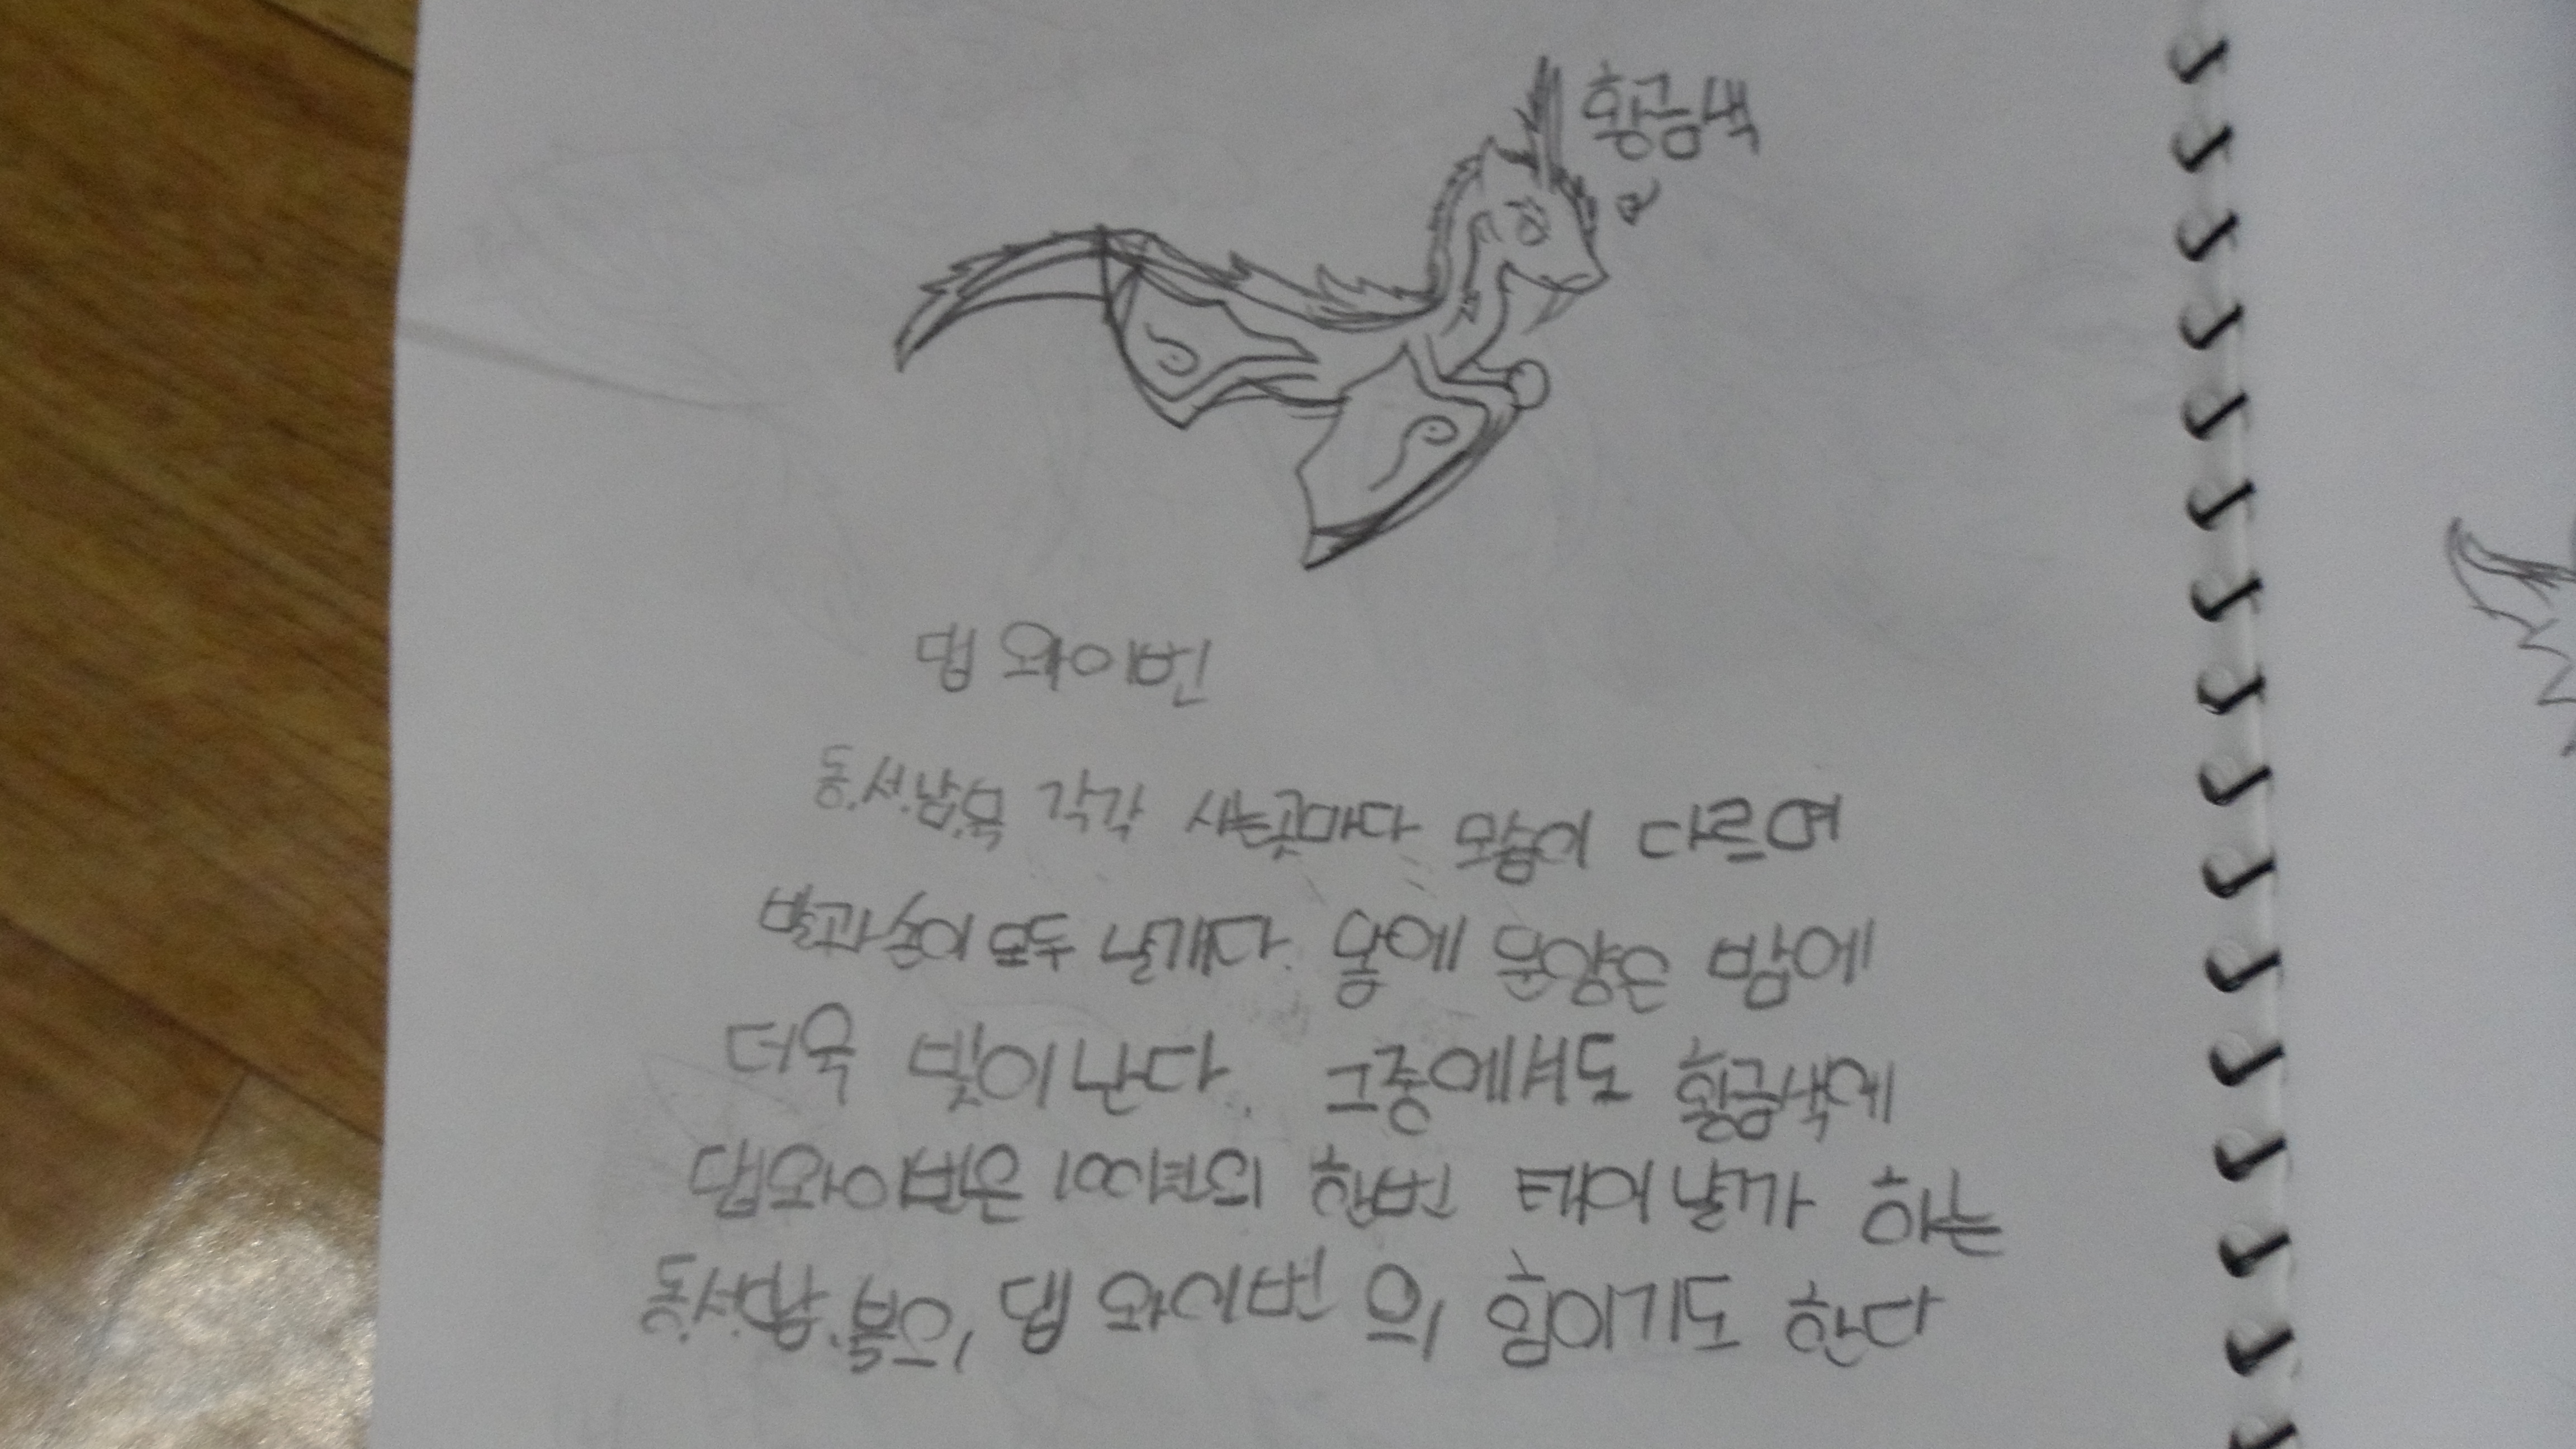 황금색
뎁 와이번
동.서.남.북 각각 사는곳마다 모습이 다르며
발과 손이 모두 날개다. 몸에 문양은 밤에
더욱 빛이 난다. 그중에서도 황금색에
뎁와이번은 100년에 한번 태어날까 하는
동.서.남.북, 뎁 와이번 의 힘이기도 한다